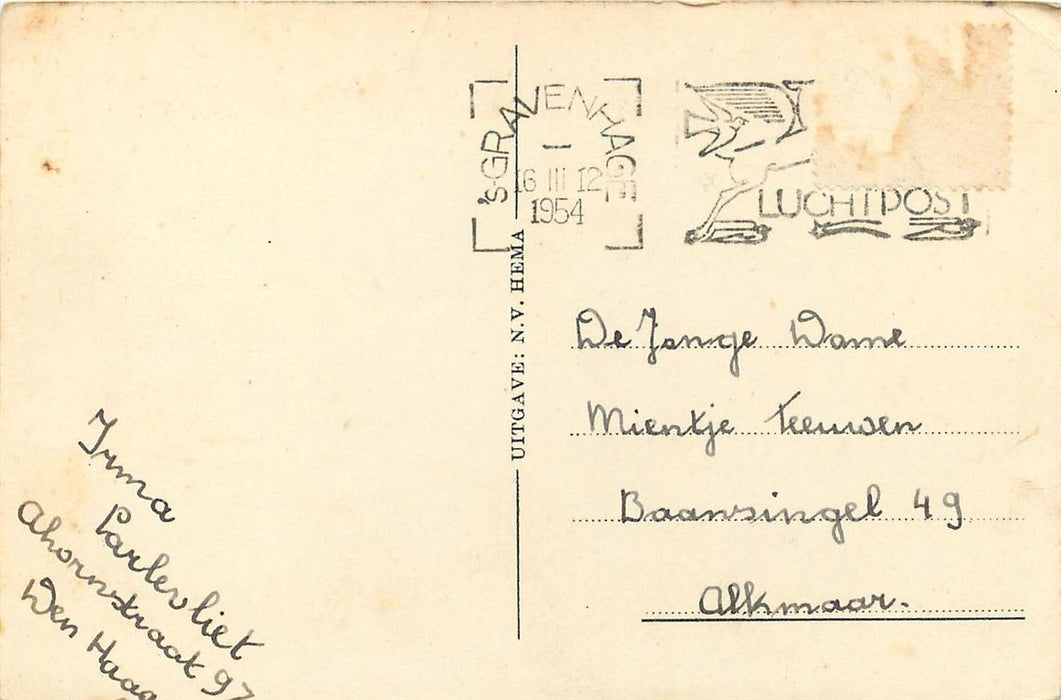 's-GRAVENHAGE
16 III 12
1954
LUCHTPOST
UITGAVE: N.V. HEMA
De Jonge Dame
Mientje Teeuwen
Baansingel 49
Alkmaar.
Irma
Parlevliet
Ahornstraat 97
Den Haag